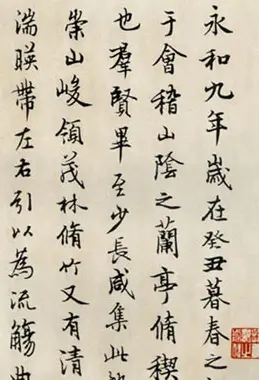 永和九年歲在癸丑暮春之
于會稽山陰之蘭亭脩稧
也羣賢畢至少長咸集此地
崇山峻領茂林脩竹又有清
湍暎帶左右引以為流觴曲